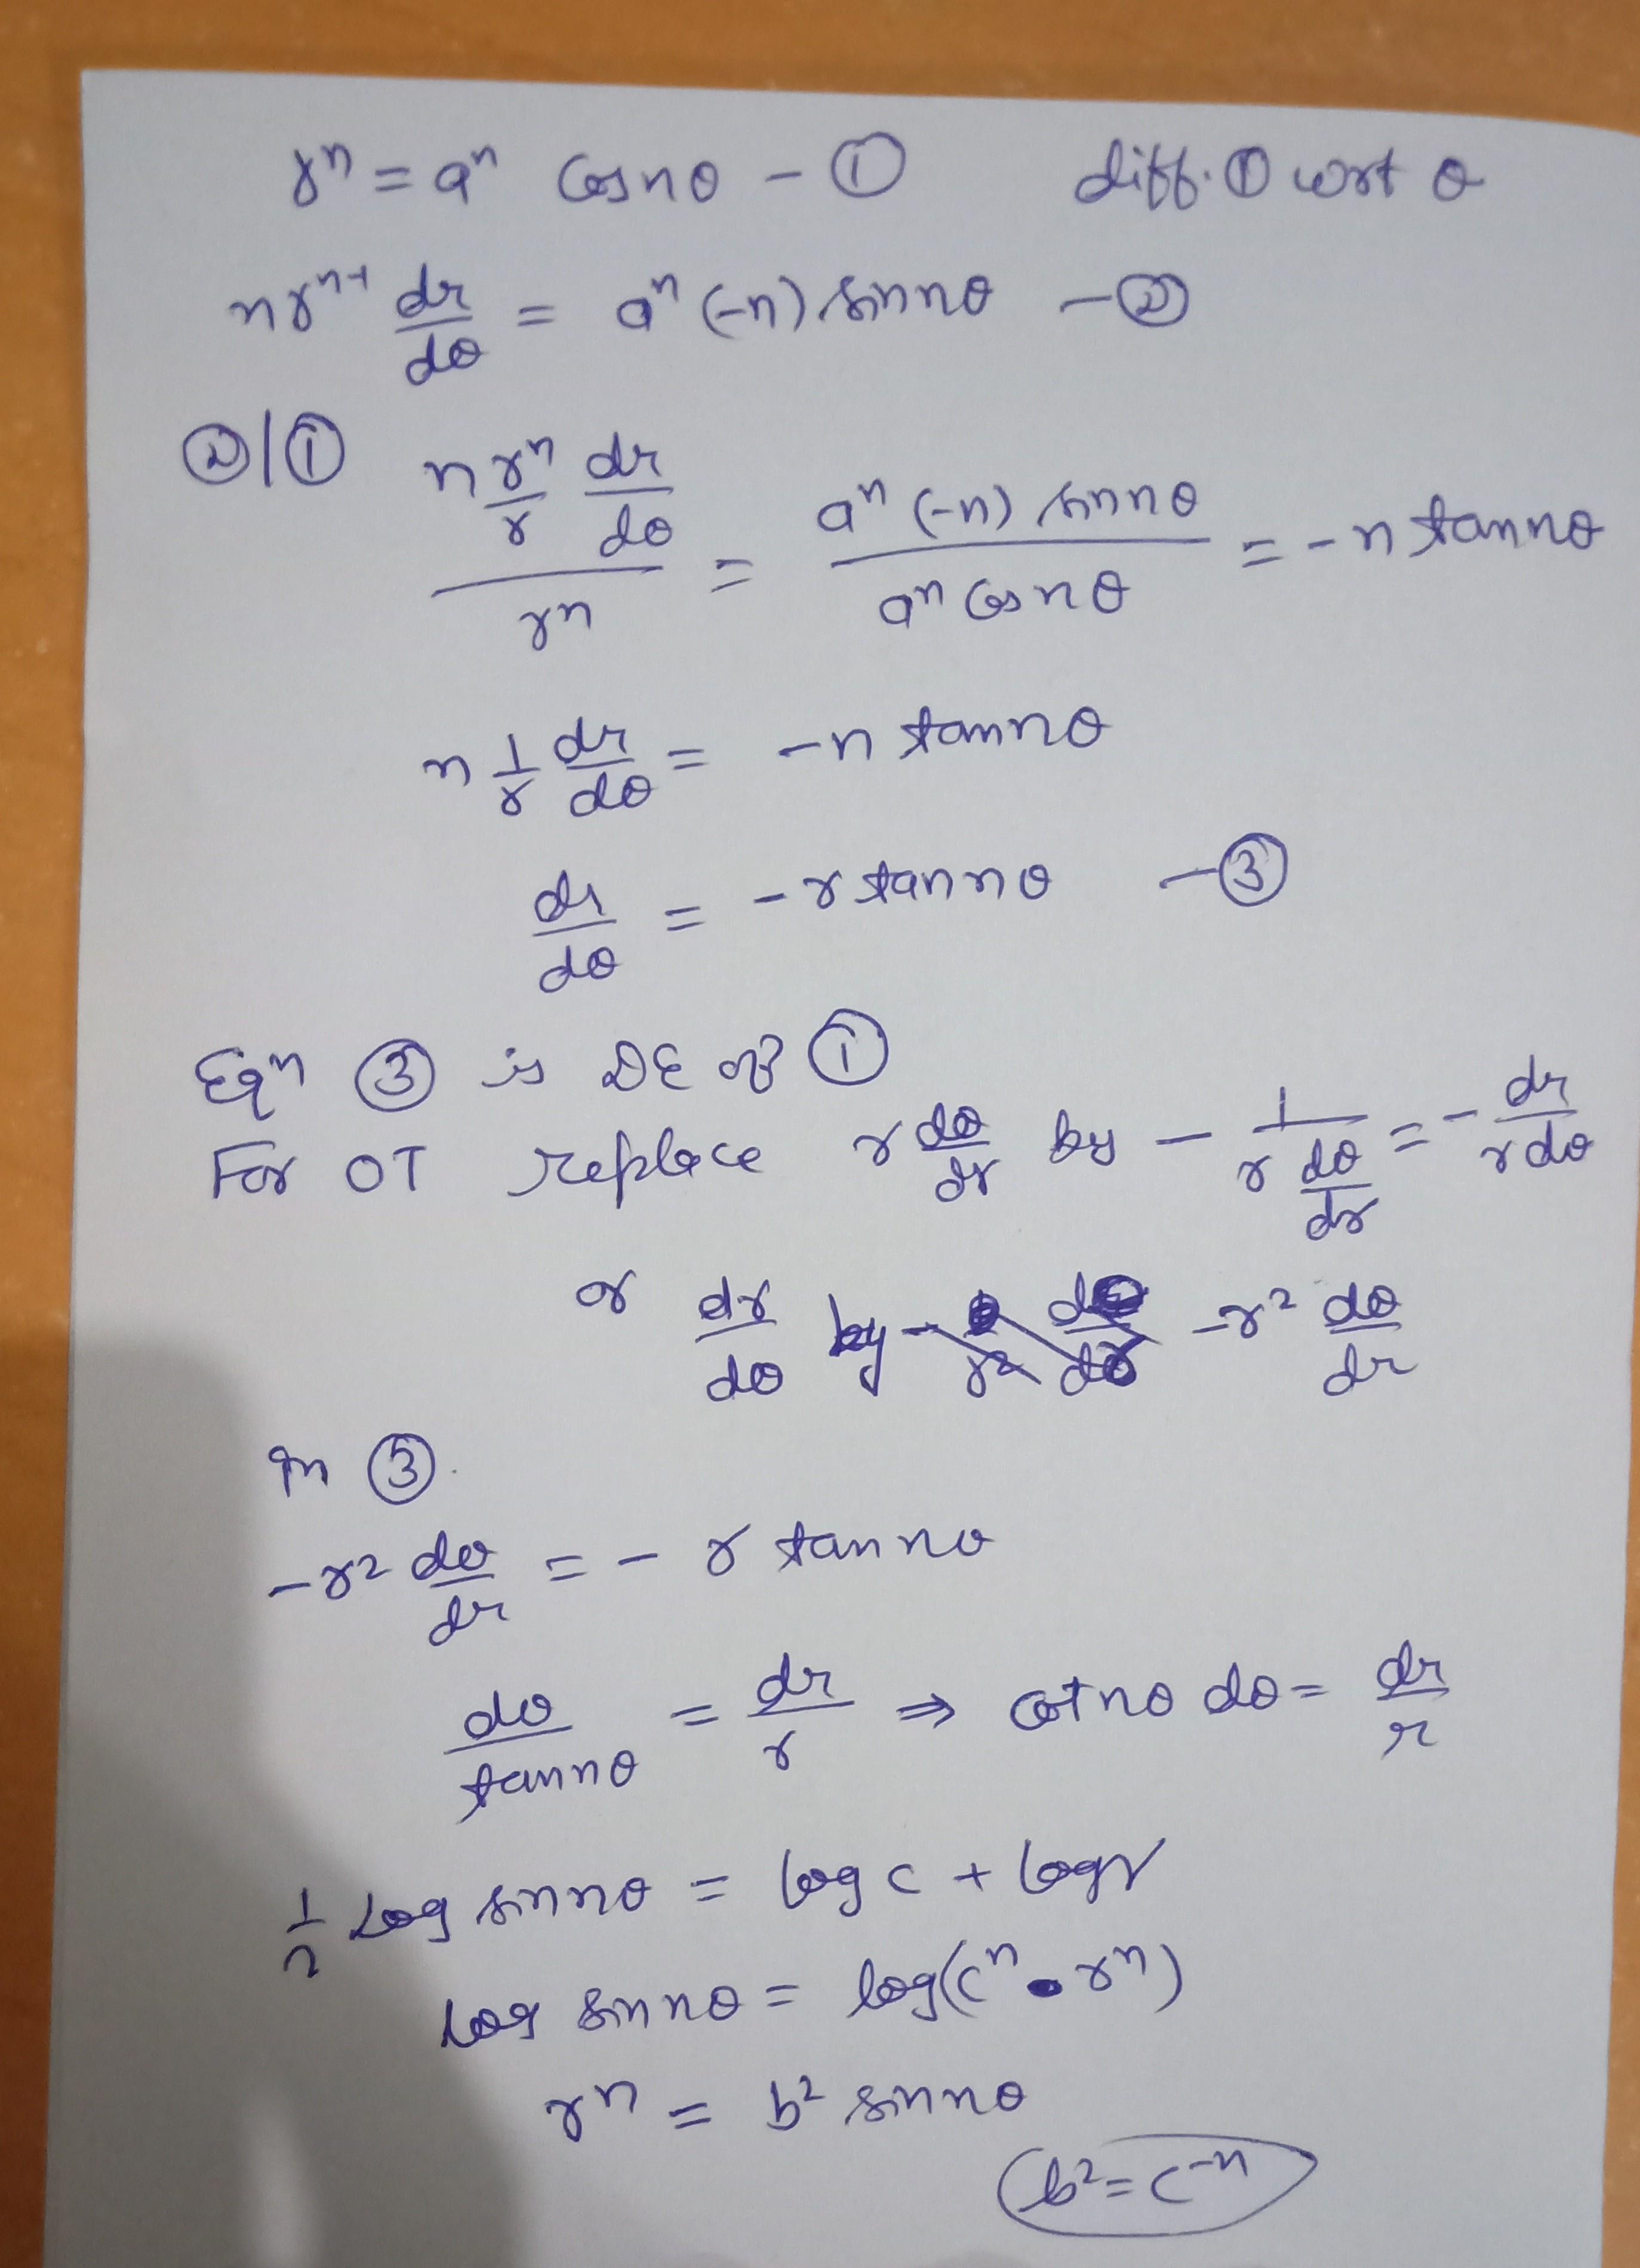 rⁿ = aⁿ cos nθ - ① diff. ① wrt θ
n rⁿ⁻¹ dr/dθ = aⁿ (-n) sin nθ - ②
②/① (n rⁿ/r dr/dθ)/rⁿ = (aⁿ (-n) sin nθ)/(aⁿ cos nθ) = -n tan nθ
n 1/r dr/dθ = -n tan nθ
dr/dθ = -r tan nθ - ③
Eqⁿ ③ is DE of ①
For OT replace r dθ/dr by - 1/(r dθ/dr) = - dr/(r dθ)
or dr/dθ by -r² dθ/dr
in ③.
-r² dθ/dr = - r tan nθ
dθ/tan nθ = dr/r ⇒ cot nθ dθ = dr/r
1/n log sin nθ = log c + log r
log sin nθ = log(cⁿ · rⁿ)
rⁿ = b² sin nθ
b² = c⁻ⁿ